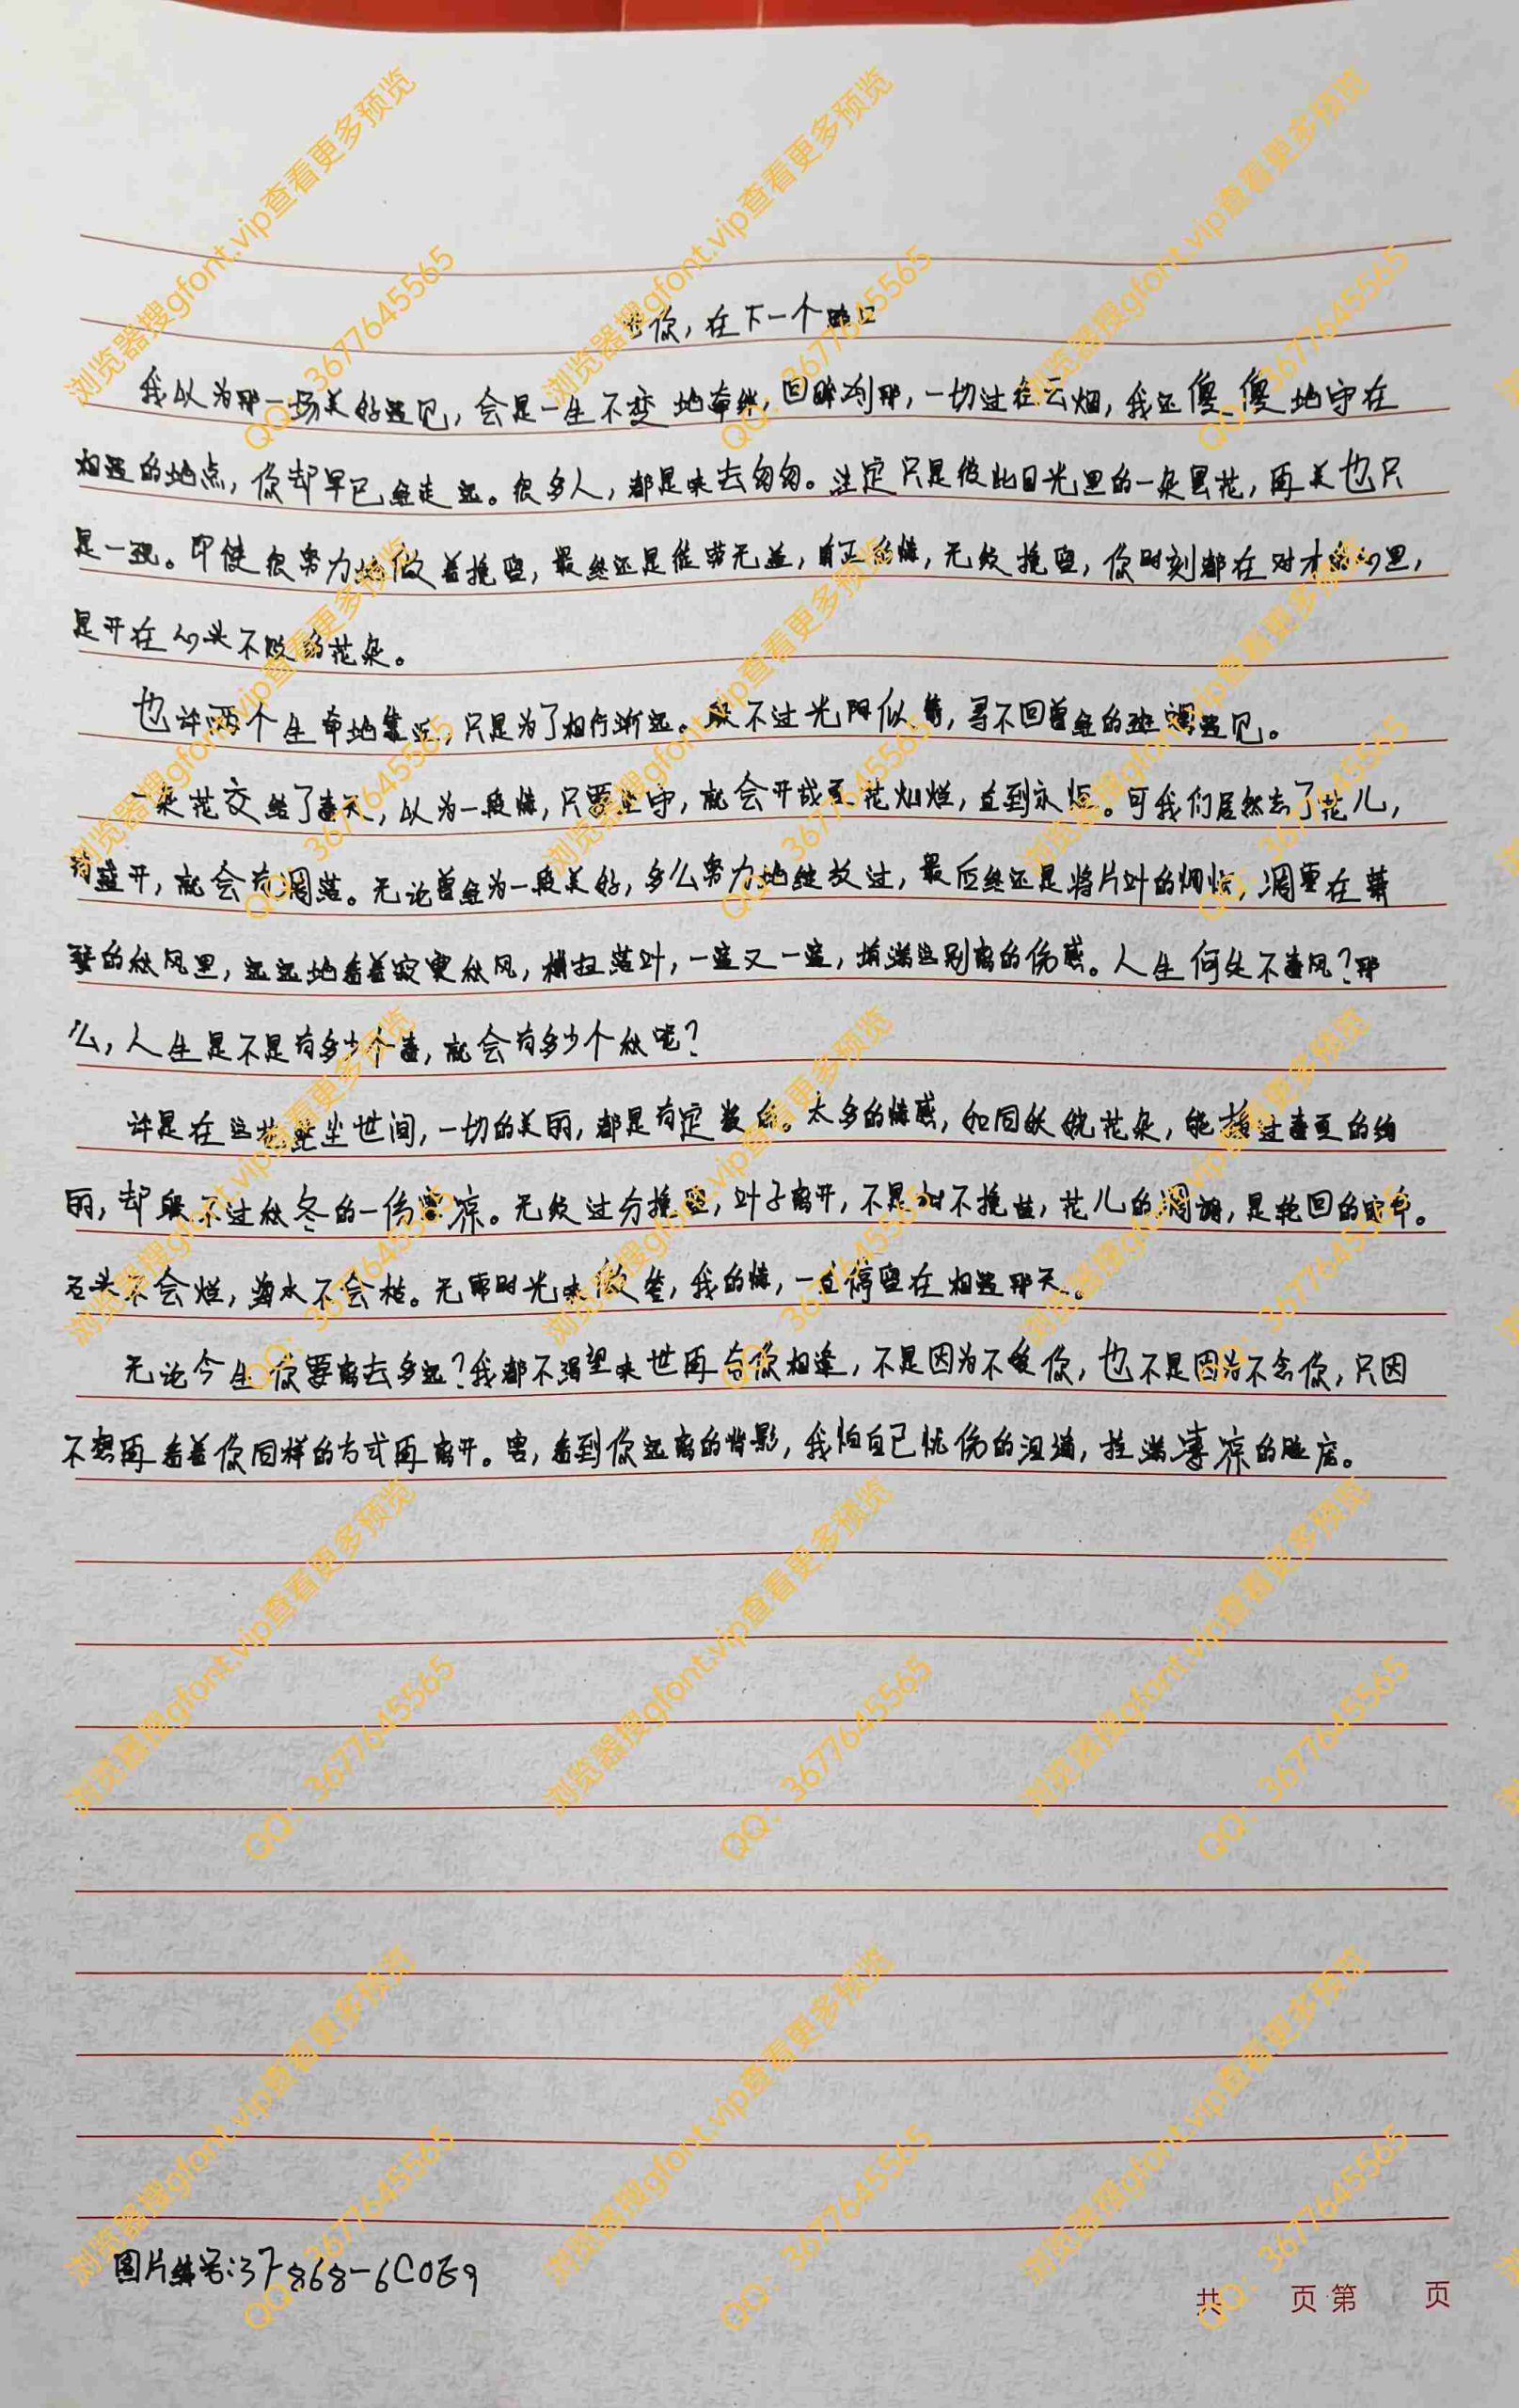 你，在下一个路口
我以为那一场美好遇见，会是一生不变地牵绊，回眸刹那，一切过往云烟，我还傻傻地守在
相遇的地点，你却早已经走远。很多人，都是来去匆匆。注定只是彼此目光里的一朵昙花，再美也只
是一现。即使很努力地做着挽留，最终还是徒劳无益，真正的情，无须挽留，你时刻都在对方的心里，
是开在心头不败的花朵。
也许两个生命地靠近，只是为了相行渐远。毕不过光阴似箭，寻不回曾经的斑斓遇见。
一朵花交给了春天，以为一段情，只要坚守，就会开成百花灿烂，直到永恒。可我们居然忘了花儿，
有盛开，就会有凋落。无论曾经为一段美好，多么努力地绽放过，最后终还是将片叶的惆怅，凋零在萧
瑟的秋风里，远远地看着寂寞秋风，横扫落叶，一遍又一遍，填满这别离的伤感。人生何处不春风？那
么，人生是不是有多少个春，就会有多少个秋呢？
许是在这茫茫尘世间，一切的美丽，都是有定数的。太多的情感，如同妖娆花朵，能挨过春夏的绚
丽，却熬不过秋冬的一伤悲凉。无须过分挽留，叶子离开，不是树不挽留，花儿的凋谢，是轮回的宿命。
石头不会烂，海水不会枯。无需时光来做签，我的情，一直停留在相遇那天。
无论今生你要离去多远？我都不渴望来世再与你相逢，不是因为不爱你，也不是因为不念你，只因
不想再看着你同样的方式再离开。害，看到你远离的背影，我怕自己忧伤的泪滴，挂满凄凉的脸庞。
图片编号：37868-6C0E9
共 页 第 页
浏览器搜gfont.vip查看更多预览
QQ：3677645565